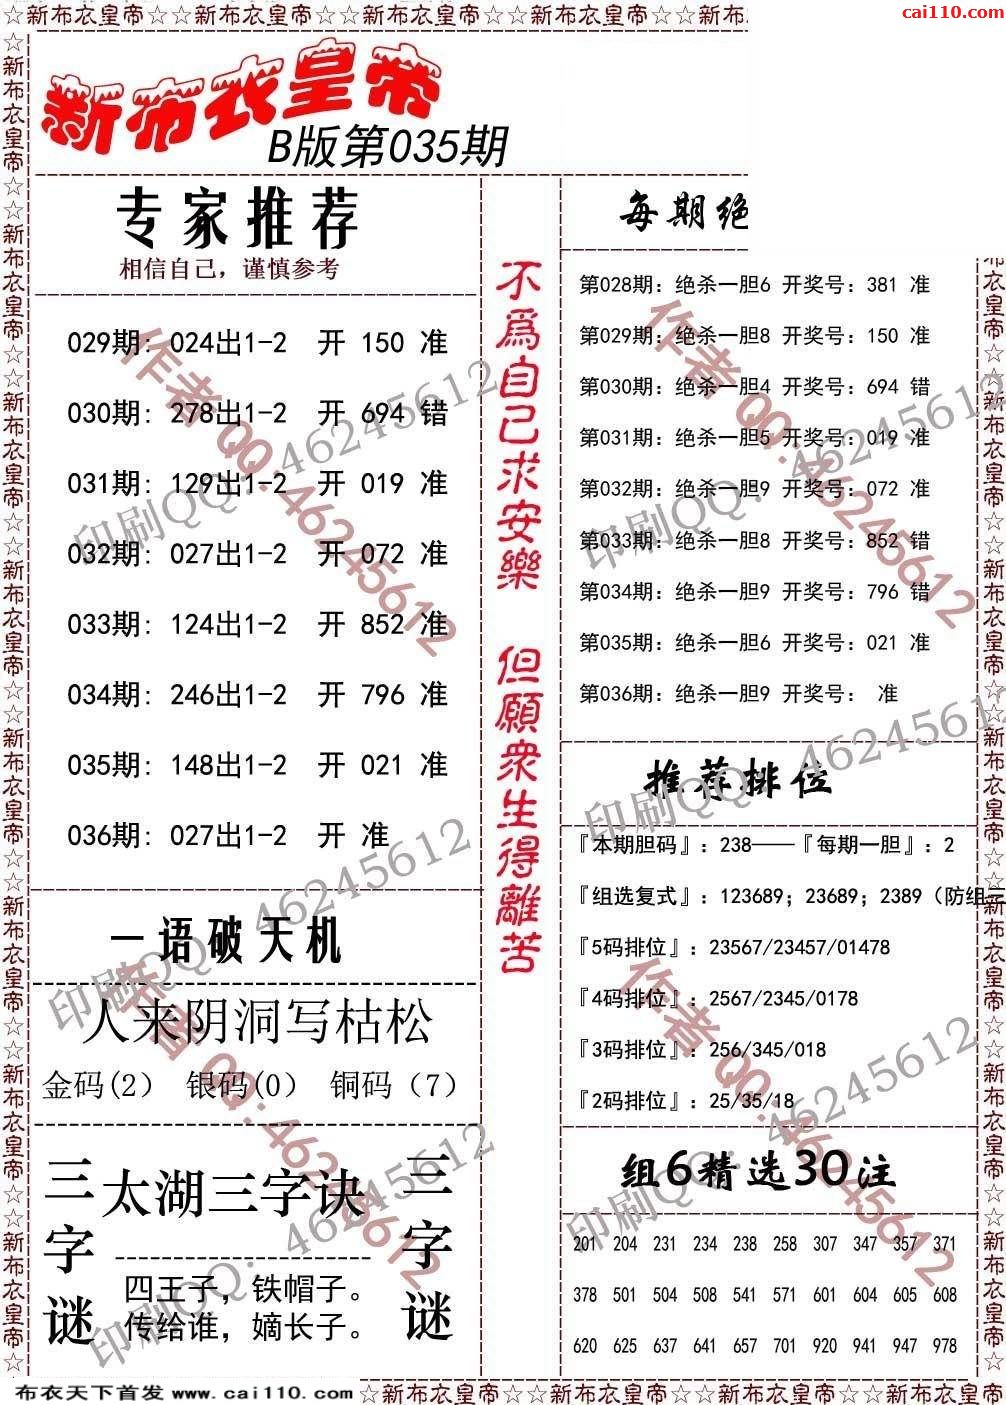 ☆新布衣皇帝☆☆新布衣皇帝☆☆新布衣皇帝☆☆新布衣皇帝☆☆新布
cai110.com
新布衣皇帝
B版第035期
专家推荐
相信自己，谨慎参考
029期: 024出1-2 开 150 准
030期: 278出1-2 开 694 错
031期: 129出1-2 开 019 准
032期: 027出1-2 开 072 准
033期: 124出1-2 开 852 准
034期: 246出1-2 开 796 准
035期: 148出1-2 开 021 准
036期: 027出1-2 开 准
一语破天机
人来阴洞写枯松
金码(2) 银码(0) 铜码（7）
三字谜
太湖三字诀
四王子，铁帽子。
传给谁，嫡长子。
三字谜
不爲自己求安樂 但願衆生得離苦
每期绝
第028期: 绝杀一胆6 开奖号: 381 准
第029期: 绝杀一胆8 开奖号: 150 准
第030期: 绝杀一胆4 开奖号: 694 错
第031期: 绝杀一胆5 开奖号: 019 准
第032期: 绝杀一胆9 开奖号: 072 准
第033期: 绝杀一胆8 开奖号: 852 错
第034期: 绝杀一胆9 开奖号: 796 错
第035期: 绝杀一胆6 开奖号: 021 准
第036期: 绝杀一胆9 开奖号: 准
推荐排位
『本期胆码』: 238——『每期一胆』: 2
『组选复式』: 123689; 23689; 2389（防组三
『5码排位』: 23567/23457/01478
『4码排位』: 2567/2345/0178
『3码排位』: 256/345/018
『2码排位』: 25/35/18
组6精选30注
201 204 231 234 238 258 307 347 357 371
378 501 504 508 541 571 601 604 605 608
620 625 637 641 657 701 920 941 947 978
作者QQ:46245612
印刷QQ:46245612
布衣天下首发 www.cai110.com
☆新布衣皇帝☆☆新布衣皇帝☆☆新布衣皇帝☆